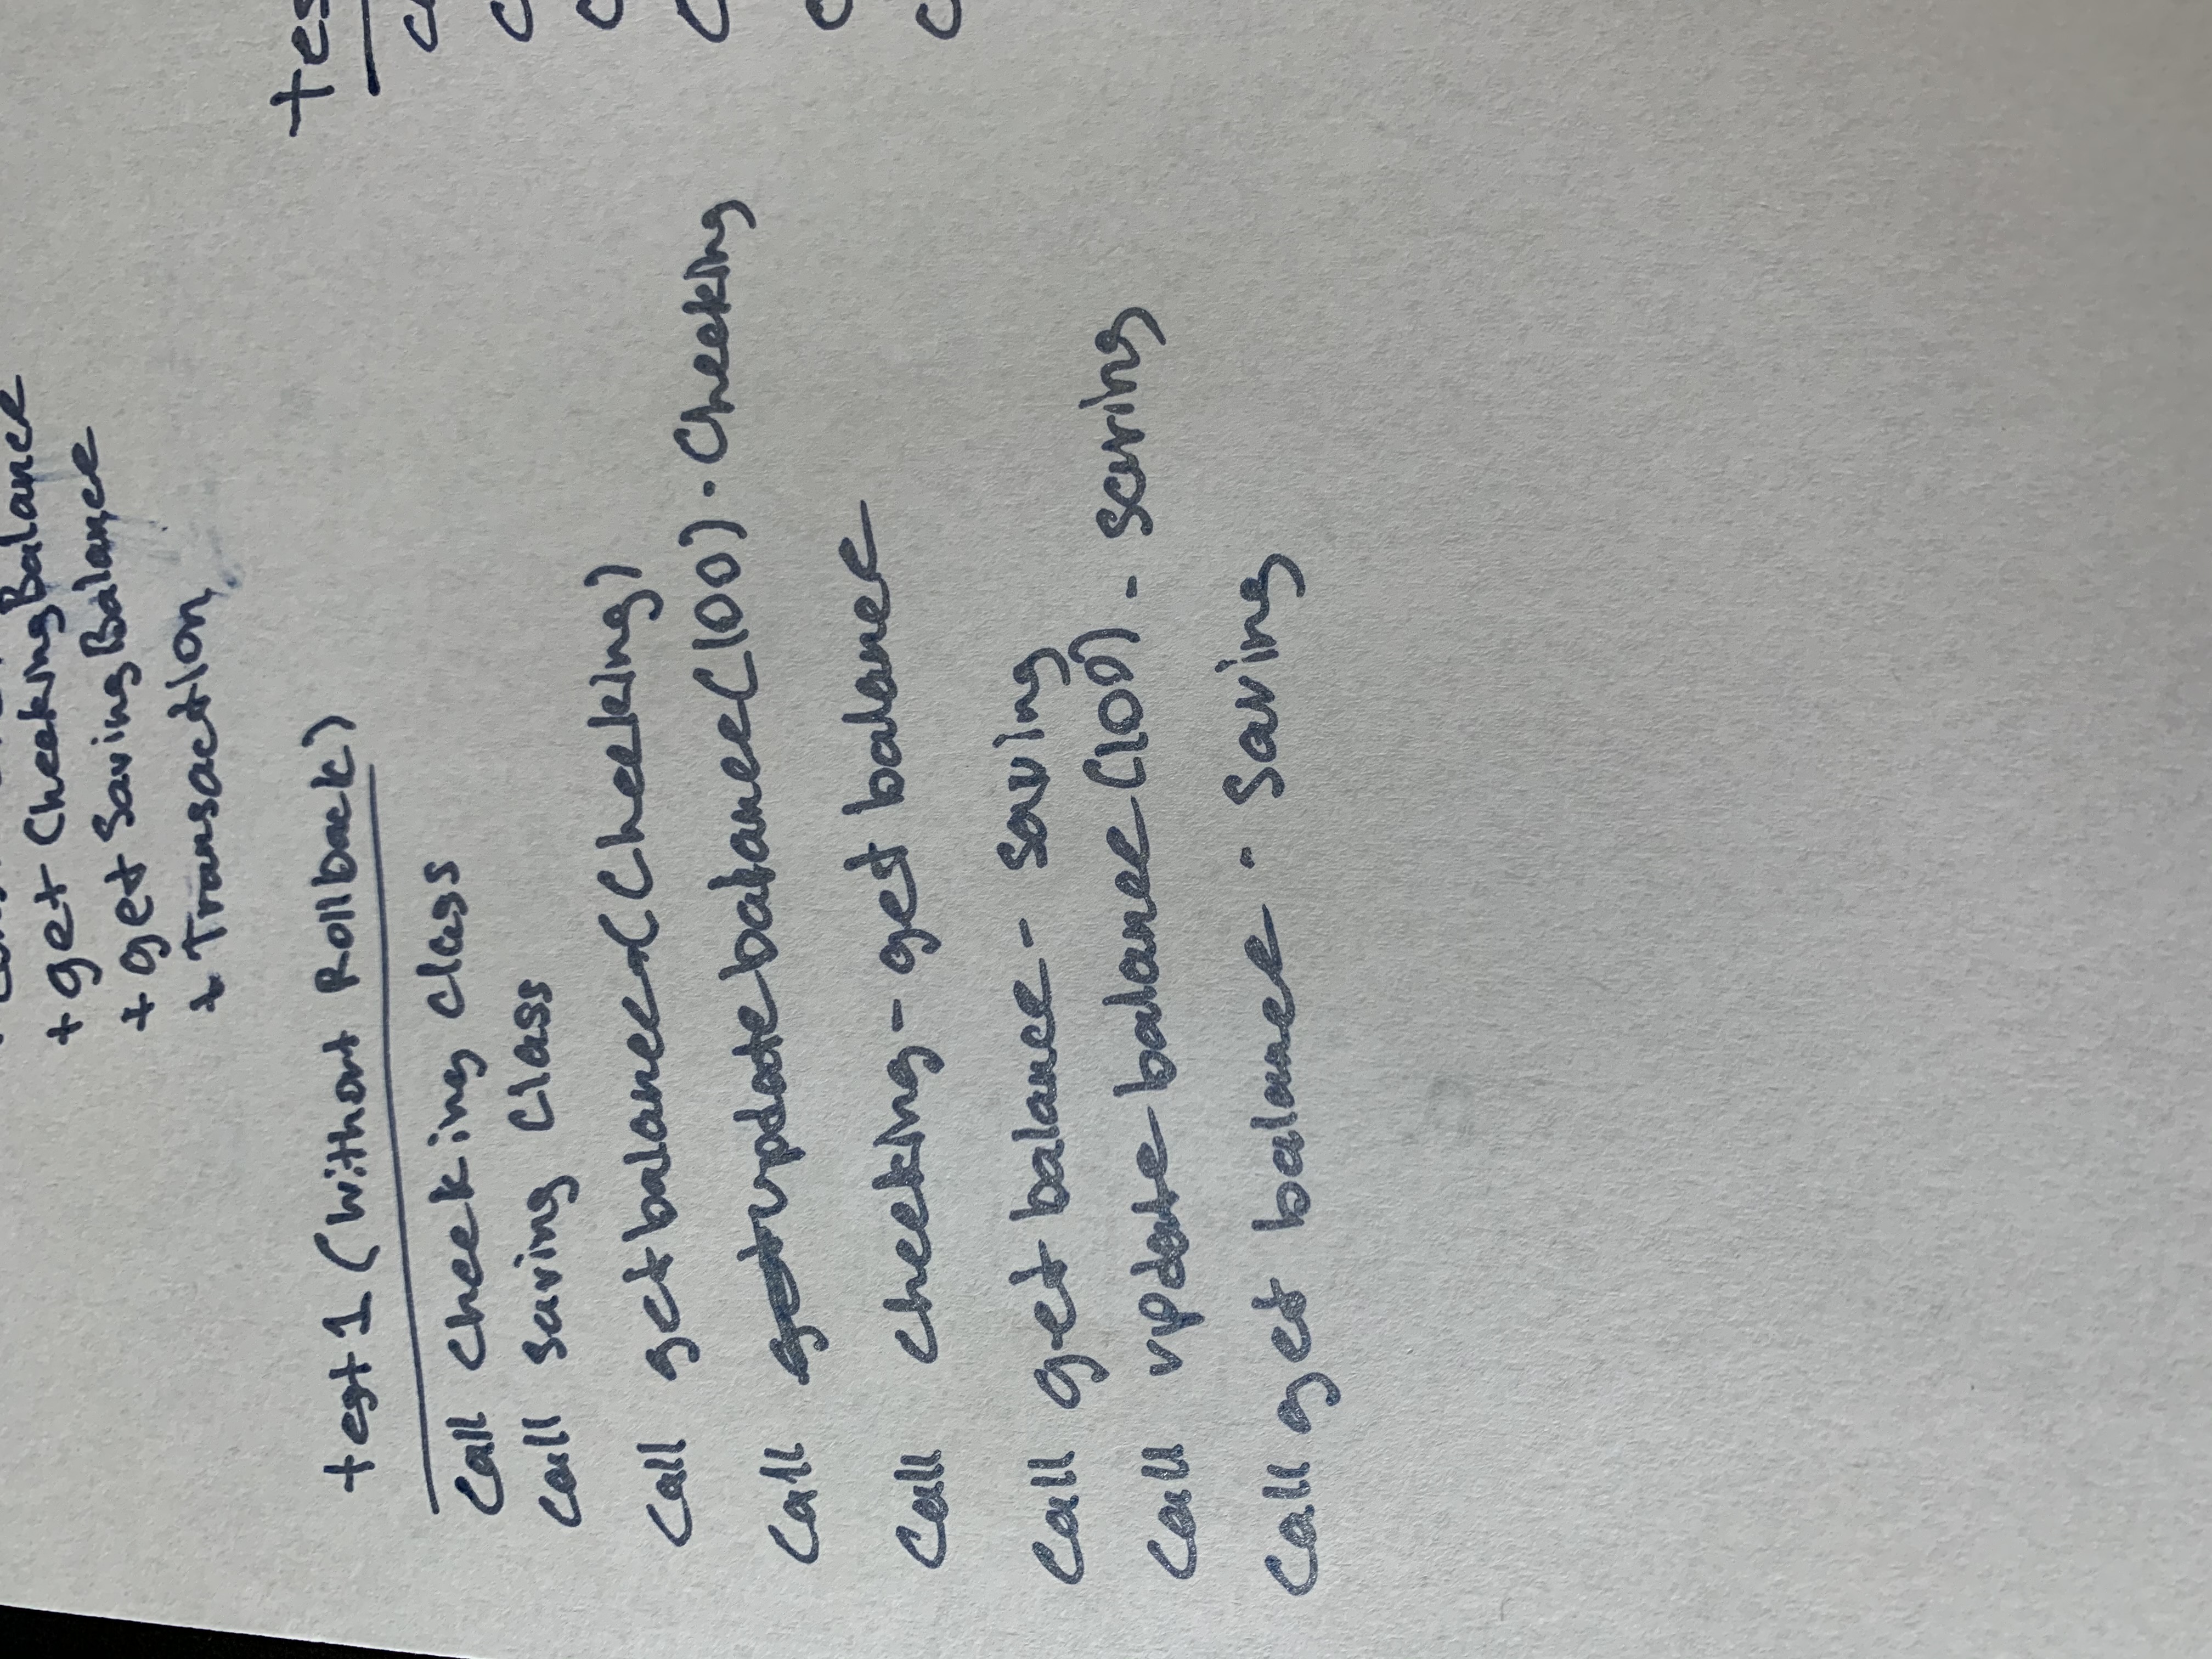 + get CheckingBalance
+ get SavingBalance
+ Transaction
test 1 (Without Rollback)
Call Checking Class
Call Saving Class
Call getbalance (Checking)
Call update balance (100) - Checking
Call Checking - get balance
Call get balance - Saving
Call update balance (100) - Saving
Call get balance - Saving